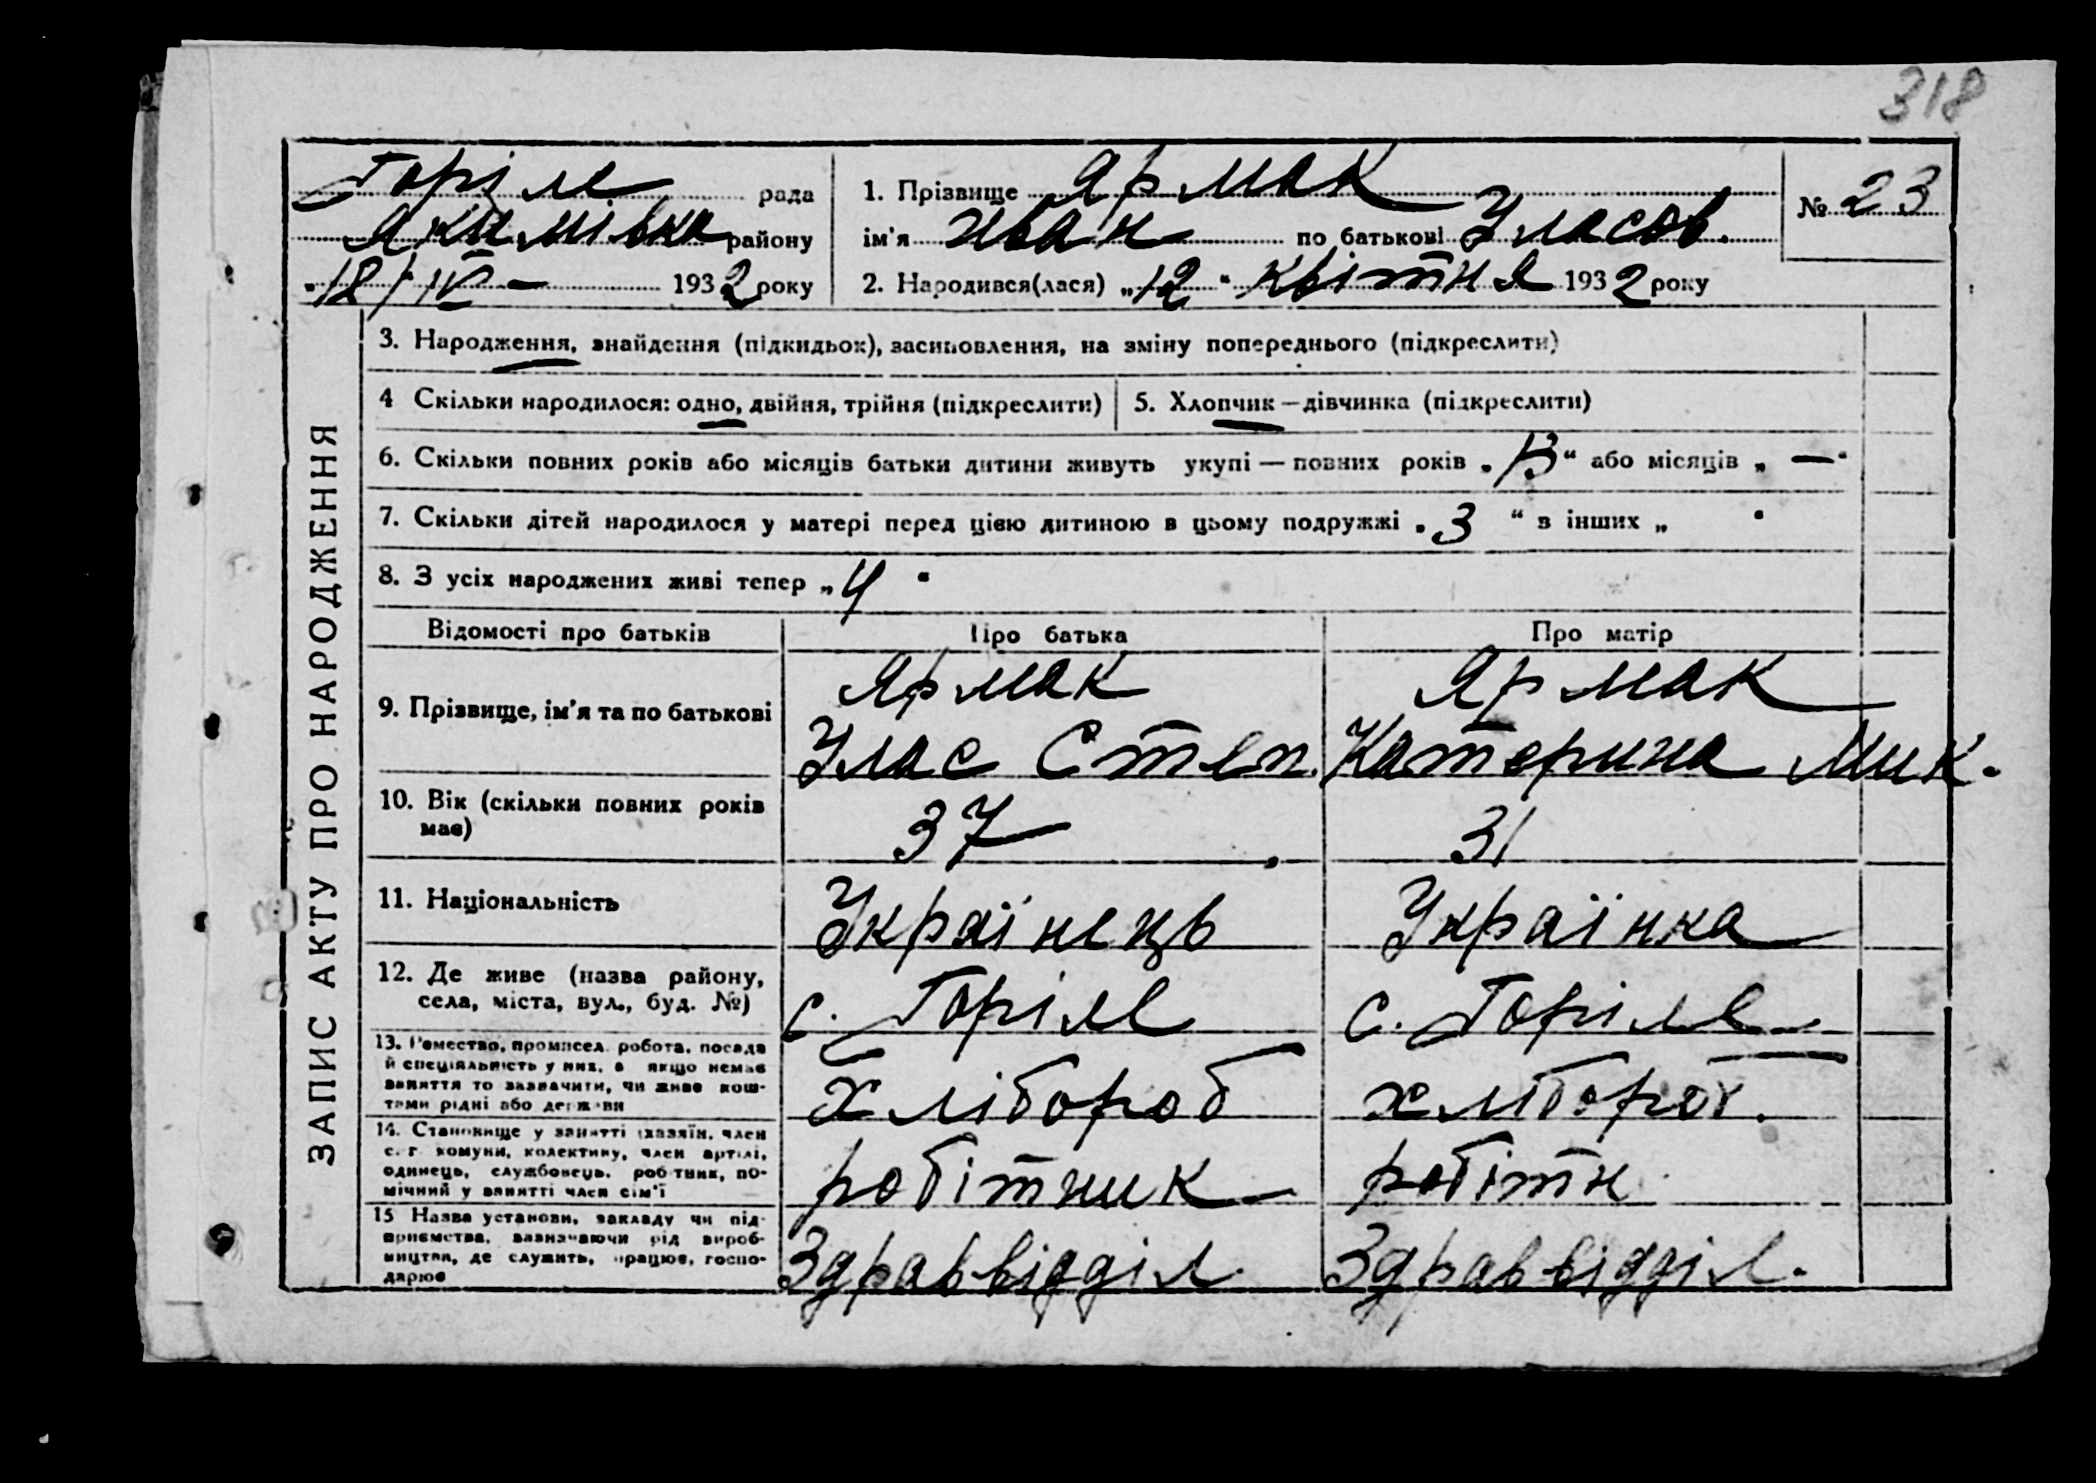 318
Горіле рада
Якимівка району
"18/IV – 1932 року
1. Прізвище Ярмак
ім'я Иван по батькові Уласов.
2. Народився(лася) „12" Квітня 1932 року
№ 23
ЗАПИС АКТУ ПРО НАРОДЖЕННЯ
3. Народження, знайдення (підкидьок), засиновлення, на зміну попереднього (підкреслити)
4 Скільки народилося: одно, двійня, трійня (підкреслити)
5. Хлопчик—дівчинка (підкреслити)
6. Скільки повних років або місяців батьки дитини живуть укупі — повних років „13" або місяців „ — "
7. Скільки дітей народилося у матері перед цією дитиною в цьому подружжі „3 " в інших „ "
8. З усіх народжених живі тепер „4 "
Відомості про батьків Про батька Про матір
9. Прізвище, ім'я та по батькові
Ярмак
Улас Степ.
Ярмак
Катерина Мик.
10. Вік (скільки повних років
має)
37 31
11. Національність Українець Українка
12. Де живе (назва району,
села, міста, вул., буд. №)
с. Горіле с. Горіле
13. Ремество, промисел, робота, посада
й спеціяльність у них, а якщо немає
заняття то зазначити, чи живе кош-
тами рідні або держави
хлібороб хлібороб.
14. Становище у занятті (хазяїн, член
с.-г. комуни, колективу, член артілі,
одинець, службовець, робітник, по-
мічний у занятті член сім'ї
робітник робітн.
15 Назва установи, закладу чи під-
приємства, зазначаючи рід вироб-
ництва, де служить, працює, госпо-
дарює
Здраввідділ. Здраввідділ.